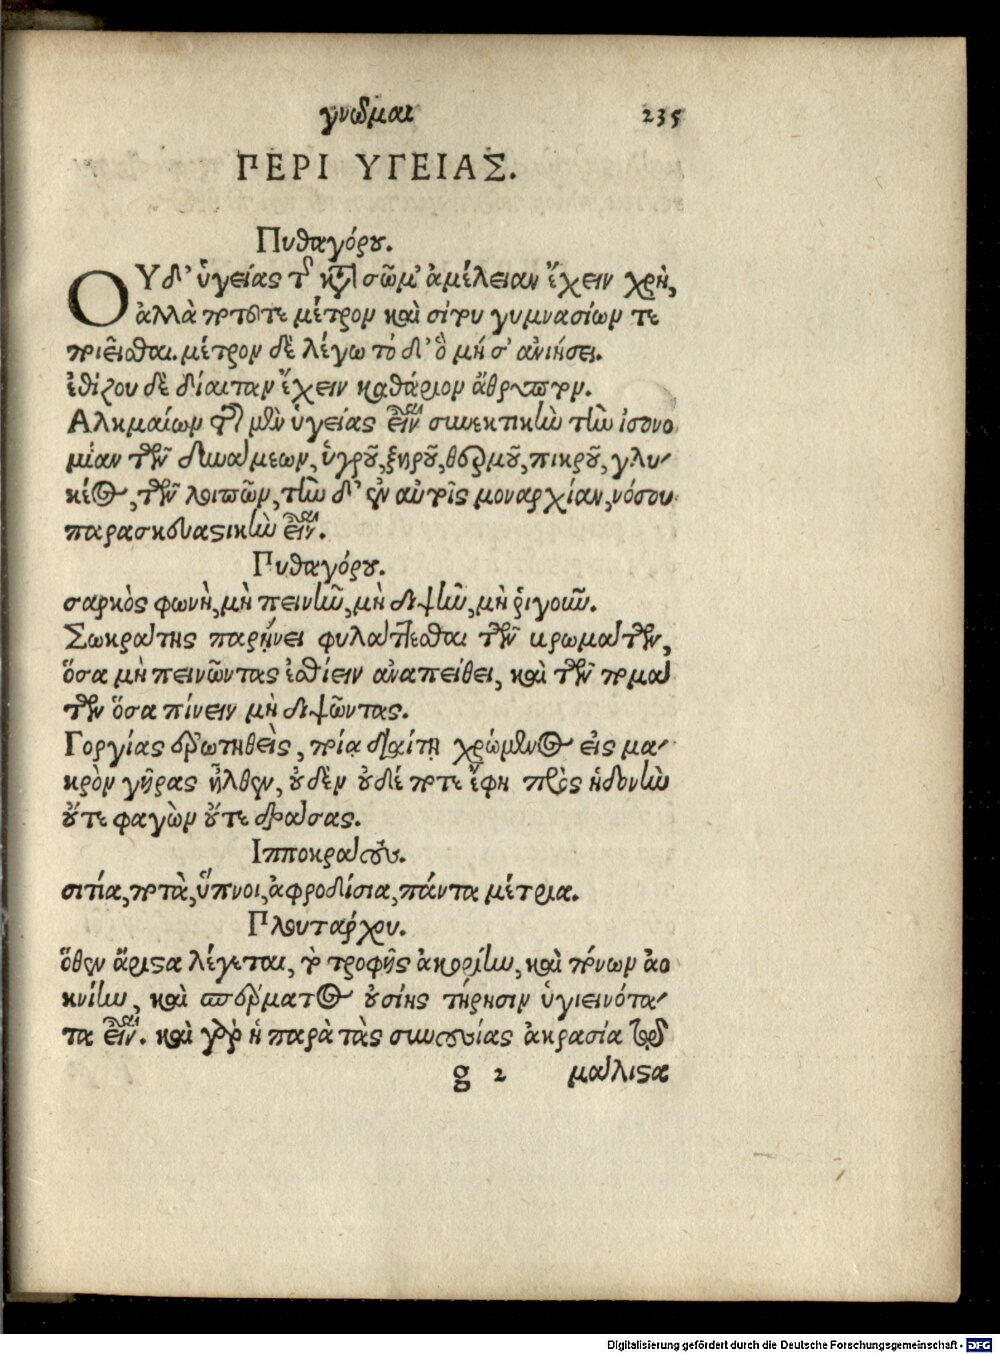 γνῶμαι 235
ΠΕΡΙ ΥΓΕΙΑΣ.
Πυθαγόρου.
ΟΥδ' ὑγείας τῆς κατὰ σῶμ' ἀμέλειαν ἔχειν χρὴ,
ἀλλὰ ποτοῦτε μέτρον καὶ σίτου γυμνασίων τε
ποιεῖσθαι. μέτρον δὲ λέγω τὸ δ' ὃ μή σ' ἀνιήσει.
ἐθίζου δὲ δίαιταν ἔχειν καθάριον ἄθρυπτον.
Αλκμαίων φησὶ μὲν ὑγείας εἶναι συνεκτικὴν τὴν ἰσονο
μίαν τῶν δυνάμεων, ὑγροῦ, ξηροῦ, θερμοῦ, πικροῦ, γλυ-
κέος, τῶν λοιπῶν, τὴν δ' ἐν αὐτοῖς μοναρχίαν, νόσου
παρασκευαστικὴν εἶναι.
Πυθαγόρου.
σαρκὸς φωνὴ, μὴ πεινῆν, μὴ διψῆν, μὴ ῥιγοῦν.
Σωκράτης παρῄνει φυλάττεσθαι τῶν βρωμάτων,
ὅσα μὴ πεινῶντας ἐσθίειν ἀναπείθει, καὶ τῶν πομά
των ὅσα πίνειν μὴ διψῶντας.
Γοργίας ἐρωτηθεὶς, ποίᾳ διαίτῃ χρώμενος εἰς μα-
κρὸν γῆρας ἦλθεν, οὐδὲν οὐδέ ποτε ἔφη πρὸς ἡδονὴν
οὔτε φαγὼν οὔτε δράσας.
Ιπποκράτους.
σιτία, ποτὰ, ὕπνοι, ἀφροδίσια, πάντα μέτρια.
Πλουτάρχου.
ὅθεν ἄριστα λέγεται, τὸ τροφῆς ἀκορίην, καὶ πόνων ἀο
κνίην, καὶ σπέρματος οὐσίης τήρησιν ὑγιεινότα-
τα εἶναι. καὶ γὰρ ἡ παρὰ τὰς συνουσίας ἀκρασία
g 2 μάλιστα
Digitalisierung gefördert durch die Deutsche Forschungsgemeinschaft - DFG